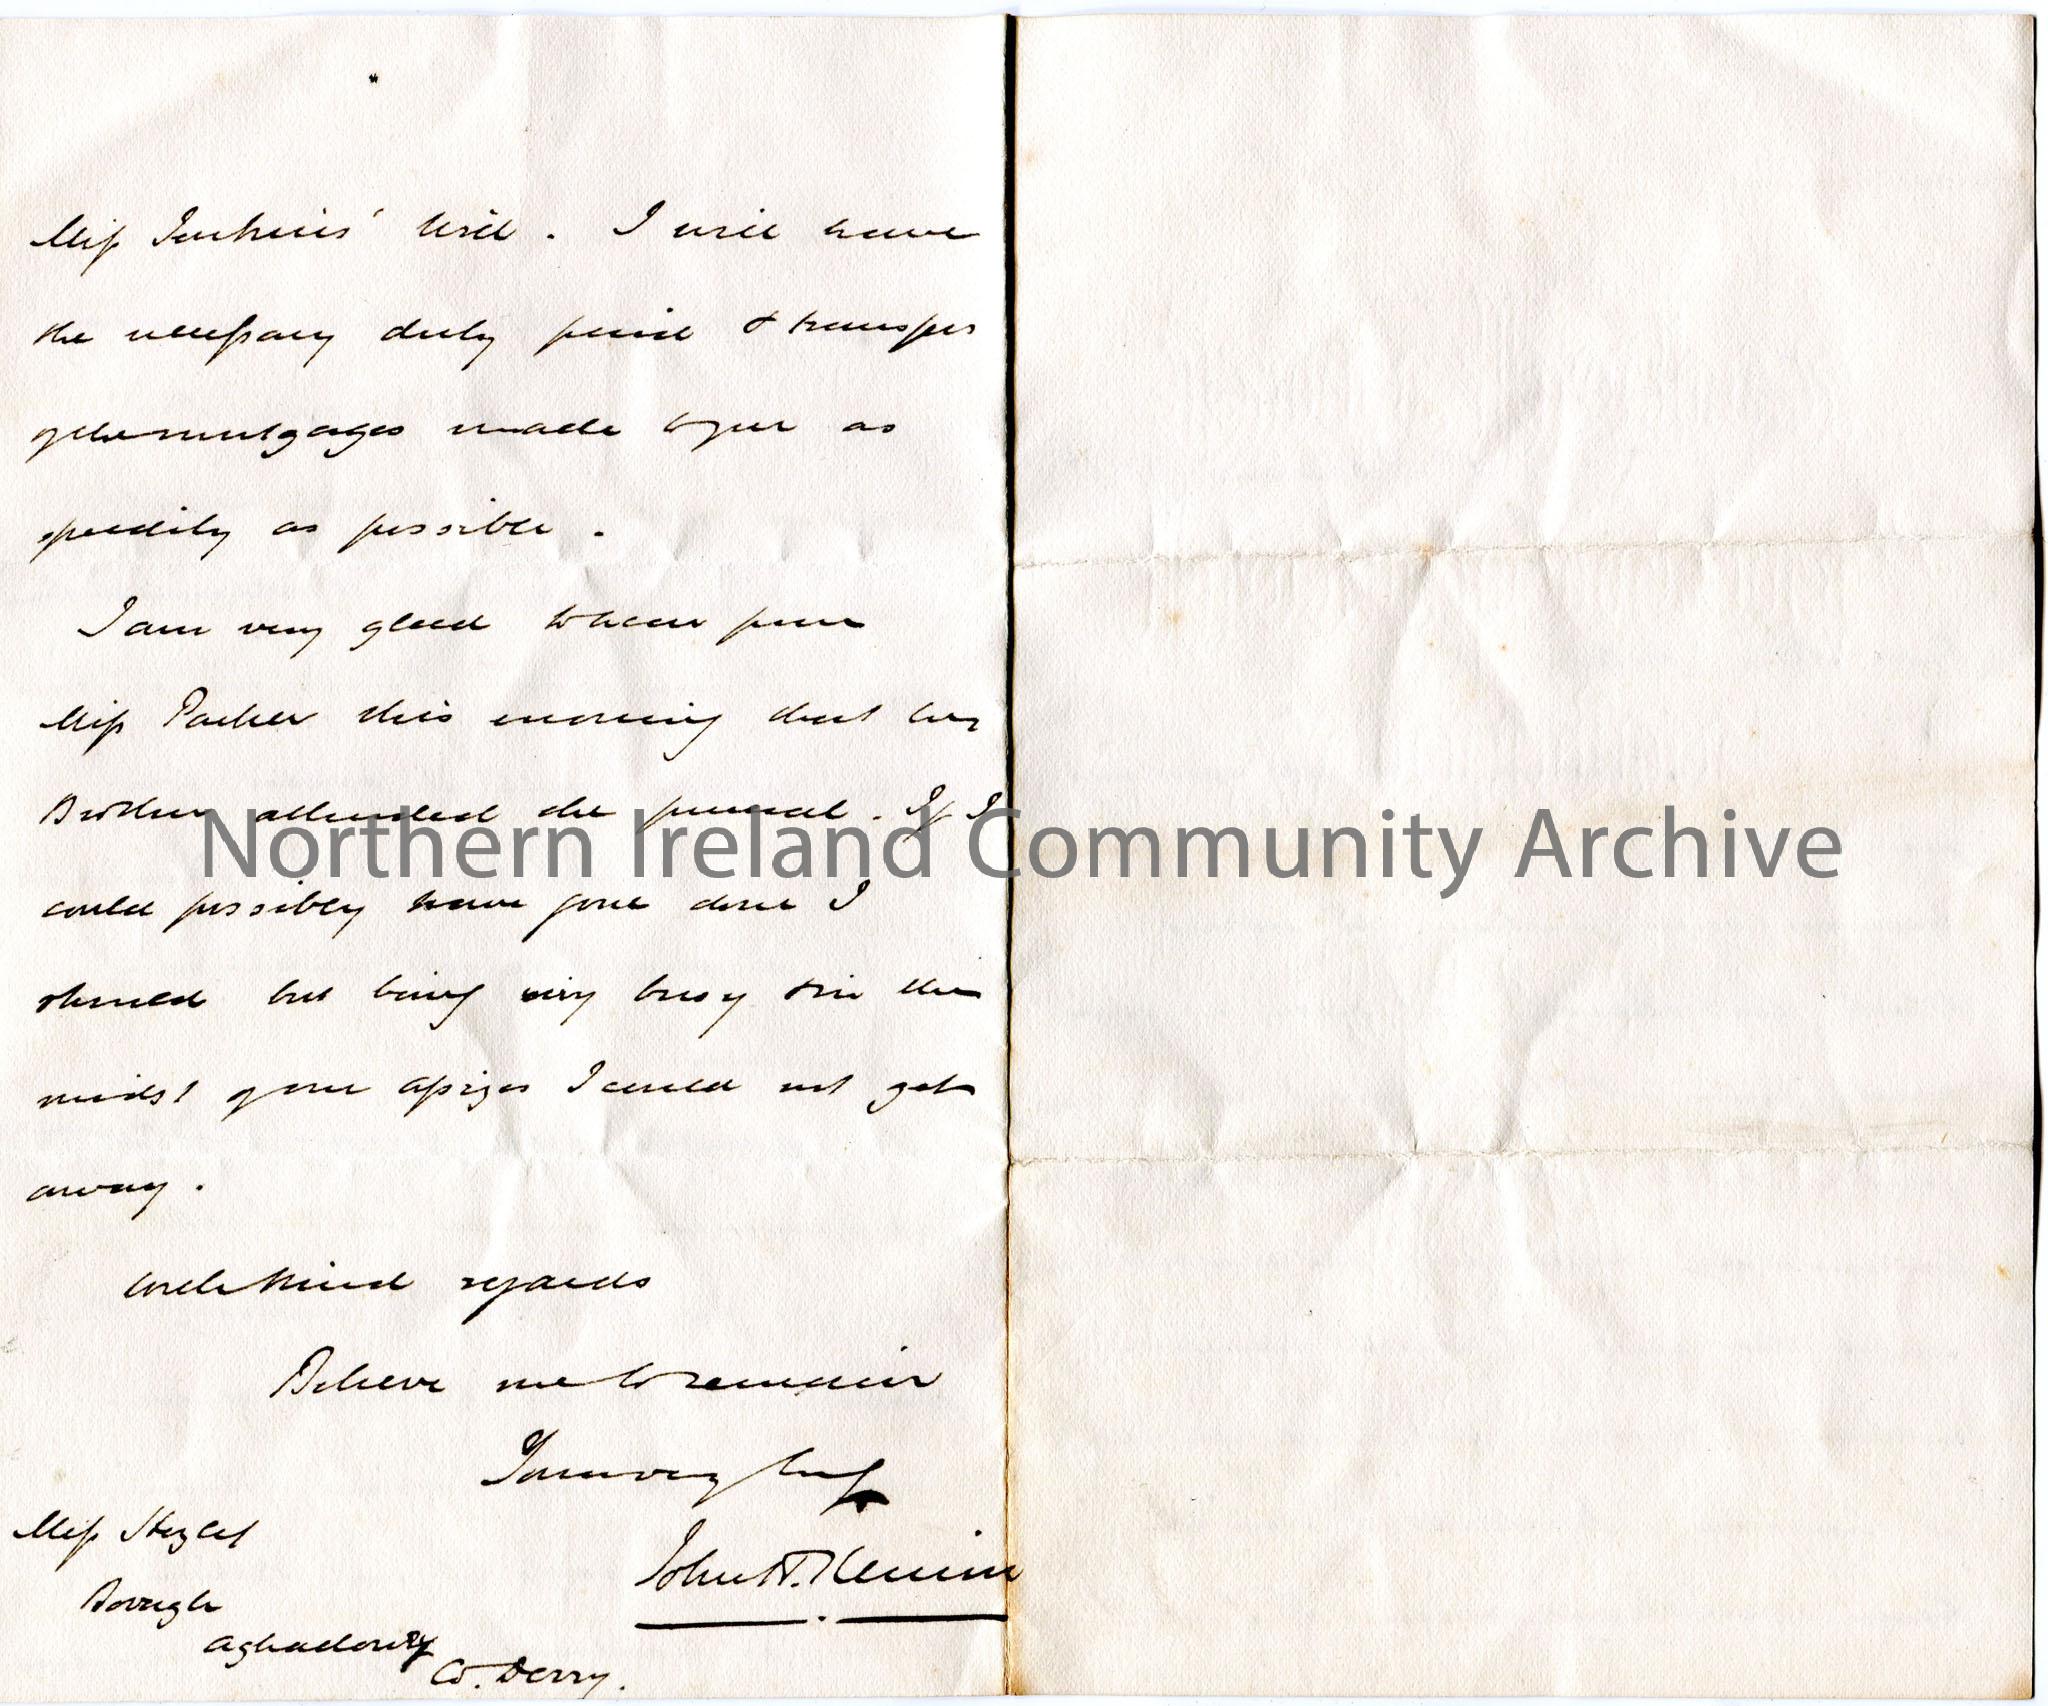 Miss Jenkins' Will. I will have
the necessary duty paid & transfer
of the mortgages made to you as
speedily as possible.
I am very glad to hear from
Miss Parker this morning that her
Brother attended the funeral. If I
could possibly have gone down I
should but being very busy & in the
midst of our assizes I could not get
away.
With kind regards
Believe me to remain
Yours very truly
John H.
Miss Hezlet
Bovagh
Aghadowey
Co. Derry.
Northern Ireland Community Archive